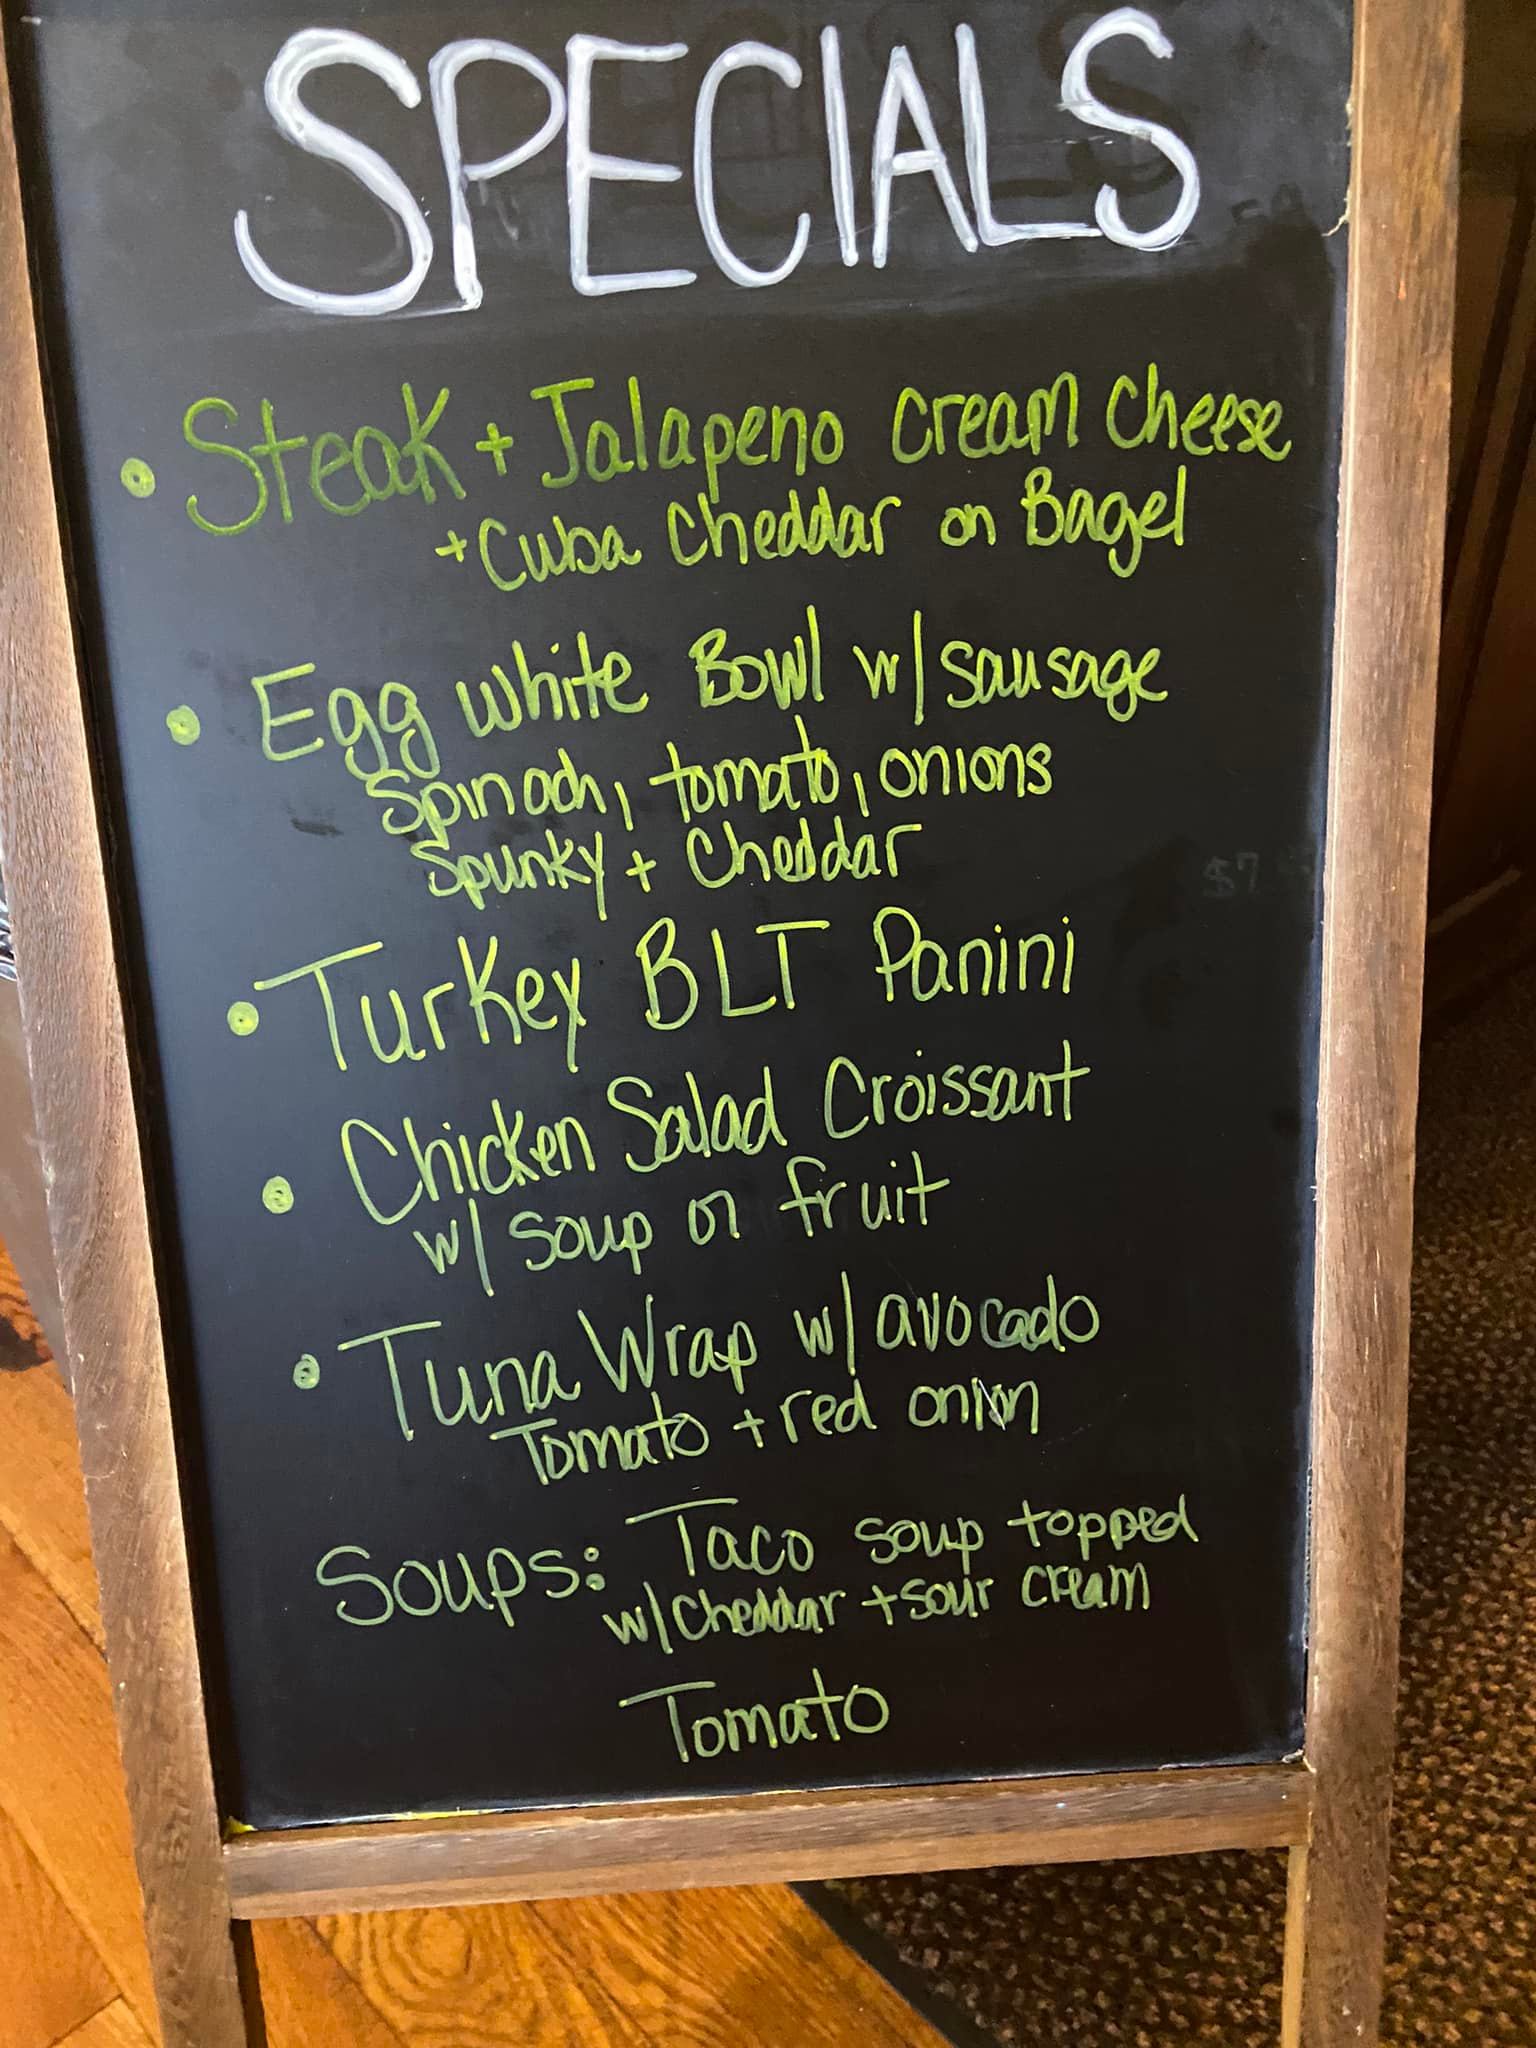 SPECIALS
• Steak + Jalapeno cream cheese
+ Cuba Cheddar on Bagel
• Egg white Bowl w/ sausage
Spinach, tomato, onions
Spunky + Cheddar
$7
• Turkey BLT Panini
• Chicken Salad Croissant
w/ soup or fruit
• Tuna Wrap w/ avocado
Tomato + red onion
Soups: Taco soup topped
w/ cheddar + sour cream
Tomato